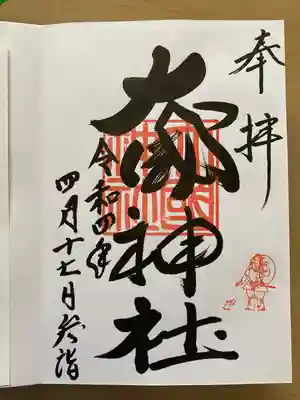 奉拝
大國神社
令和四年
四月十七日参詣